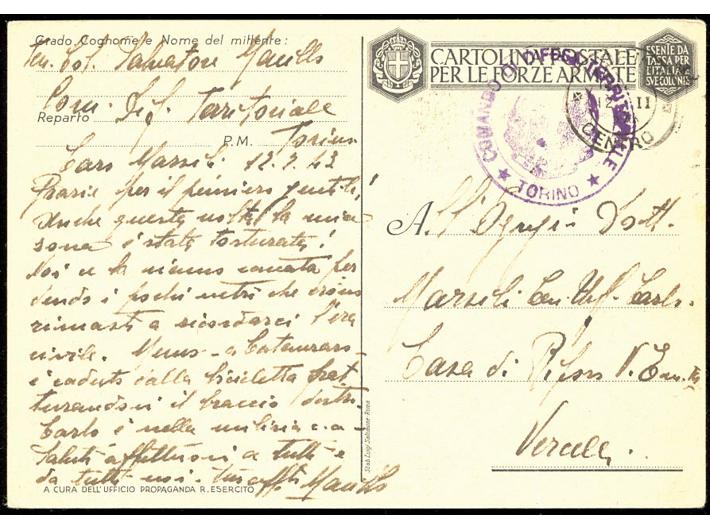 Grado Cognome e Nome del mittente:
Ten. Col. Salvatore
Com. Dif. Territoriale
Reparto
P.M. Torino
Caro Marsili 12.2.43
Grazie per il pensiero gentile!
Anche questa volta la mia
zona è stata
Noi ce la siamo cavata per
dendo i pochi vetri che erano
rimasti a ricordarci l'era
civile. a Catanzaro
è caduto dalla bicicletta frat
turandosi il braccio destro
Carlo è nella milizia c.a.
Saluti affettuosi a tutti e
da tutti noi.
A CURA DELL'UFFICIO PROPAGANDA R. ESERCITO
CARTOLINA POSTALE
PER LE FORZE ARMATE
ESENTE DA
TASSA PER
L'ITALIA
SUE COLONIE
COMANDO DIFESA TERRITORIALE
★ TORINO ★
CENTRO
II
All'Egregio Dott.
Marsili Cav. Uff. Carlo
Casa di Riposo V. Em.
Vercelli
Stab. Luigi Salomone Roma